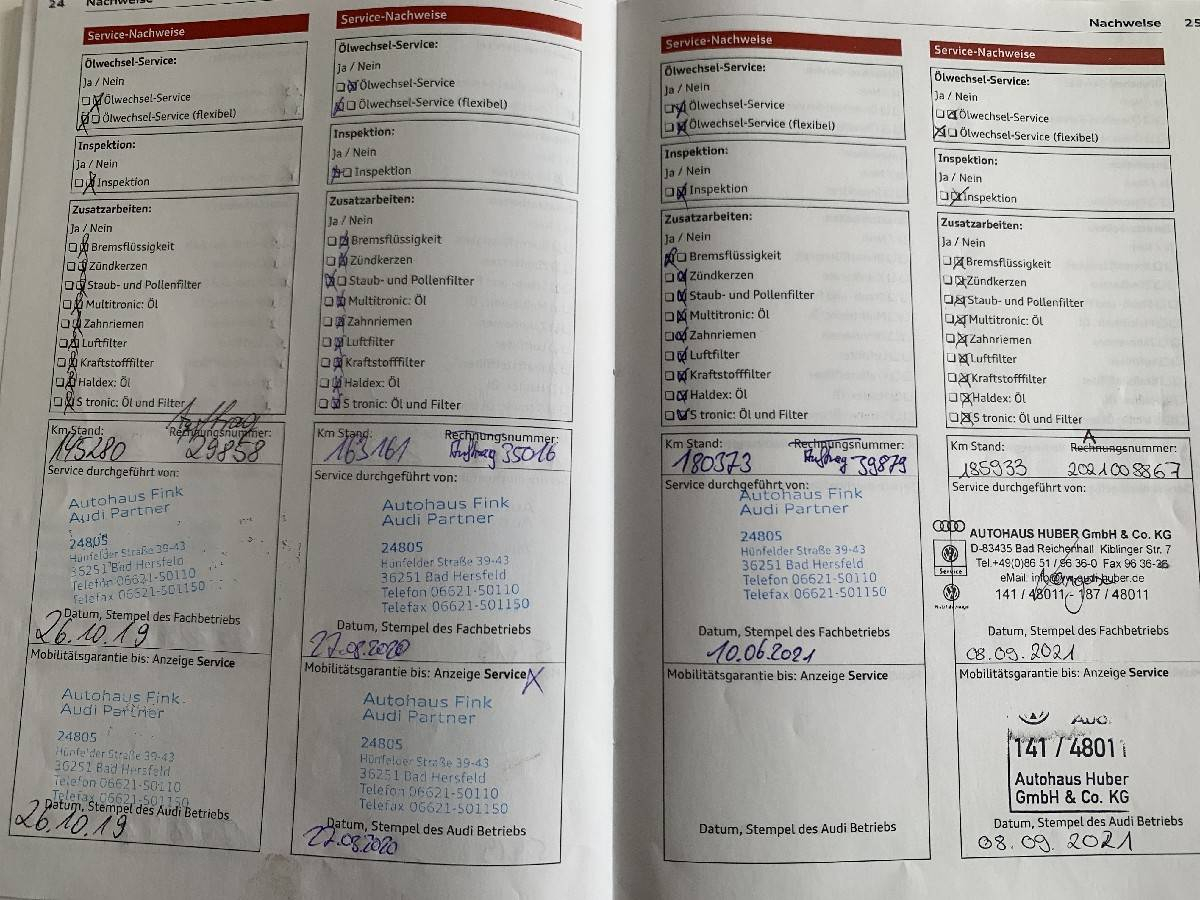 24 Nachweise
Service-Nachweise
Ölwechsel-Service:
Ja / Nein
Ölwechsel-Service
Ölwechsel-Service (flexibel)
Inspektion:
Ja / Nein
Inspektion
Zusatzarbeiten:
Ja / Nein
Bremsflüssigkeit
Zündkerzen
Staub- und Pollenfilter
Multitronic: Öl
Zahnriemen
Luftfilter
Kraftstofffilter
Haldex: Öl
S tronic: Öl und Filter
Auftrag
Km Stand: Rechnungsnummer:
145280 29858
Service durchgeführt von:
Autohaus Fink
Audi Partner
24805
Hünfelder Straße 39-43
36251 Bad Hersfeld
Telefon 06621-50110
Telefax 06621-501150
Datum, Stempel des Fachbetriebs
26.10.19
Mobilitätsgarantie bis: Anzeige Service
Autohaus Fink
Audi Partner
24805
Hünfelder Straße 39-43
36251 Bad Hersfeld
Telefon 06621-50110
Telefax 06621-501150
Datum, Stempel des Audi Betriebs
26.10.19
Service-Nachweise
Ölwechsel-Service:
Ja / Nein
Ölwechsel-Service
Ölwechsel-Service (flexibel)
Inspektion:
Ja / Nein
Inspektion
Zusatzarbeiten:
Ja / Nein
Bremsflüssigkeit
Zündkerzen
Staub- und Pollenfilter
Multitronic: Öl
Zahnriemen
Luftfilter
Kraftstofffilter
Haldex: Öl
S tronic: Öl und Filter
Km Stand: Rechnungsnummer:
163161 Auftrag 35016
Service durchgeführt von:
Autohaus Fink
Audi Partner
24805
Hünfelder Straße 39-43
36251 Bad Hersfeld
Telefon 06621-50110
Telefax 06621-501150
Datum, Stempel des Fachbetriebs
27.08.2020
Mobilitätsgarantie bis: Anzeige Service X
Autohaus Fink
Audi Partner
24805
Hünfelder Straße 39-43
36251 Bad Hersfeld
Telefon 06621-50110
Telefax 06621-501150
Datum, Stempel des Audi Betriebs
27.08.2020
Nachweise 25
Service-Nachweise
Ölwechsel-Service:
Ja / Nein
Ölwechsel-Service
Ölwechsel-Service (flexibel)
Inspektion:
Ja / Nein
Inspektion
Zusatzarbeiten:
Ja / Nein
Bremsflüssigkeit
Zündkerzen
Staub- und Pollenfilter
Multitronic: Öl
Zahnriemen
Luftfilter
Kraftstofffilter
Haldex: Öl
S tronic: Öl und Filter
Km Stand: Rechnungsnummer:
180373 Auftrag 39879
Service durchgeführt von:
Autohaus Fink
Audi Partner
24805
Hünfelder Straße 39-43
36251 Bad Hersfeld
Telefon 06621-50110
Telefax 06621-501150
Datum, Stempel des Fachbetriebs
10.06.2021
Mobilitätsgarantie bis: Anzeige Service
Datum, Stempel des Audi Betriebs
Service-Nachweise
Ölwechsel-Service:
Ja / Nein
Ölwechsel-Service
Ölwechsel-Service (flexibel)
Inspektion:
Ja / Nein
Inspektion
Zusatzarbeiten:
Ja / Nein
Bremsflüssigkeit
Zündkerzen
Staub- und Pollenfilter
Multitronic: Öl
Zahnriemen
Luftfilter
Kraftstofffilter
Haldex: Öl
S tronic: Öl und Filter
A
Km Stand: Rechnungsnummer:
185933 2021008867
Service durchgeführt von:
AUTOHAUS HUBER GmbH & Co. KG
D-83435 Bad Reichenhall Kiblinger Str. 7
Tel.+49(0)86 51 / 96 36-0 Fax 96 36-36
Service
141 / 48011 - 187 / 48011
Datum, Stempel des Fachbetriebs
08.09.2021
Mobilitätsgarantie bis: Anzeige Service
141 / 4801
Autohaus Huber
GmbH & Co. KG
Datum, Stempel des Audi Betriebs
08.09.2021